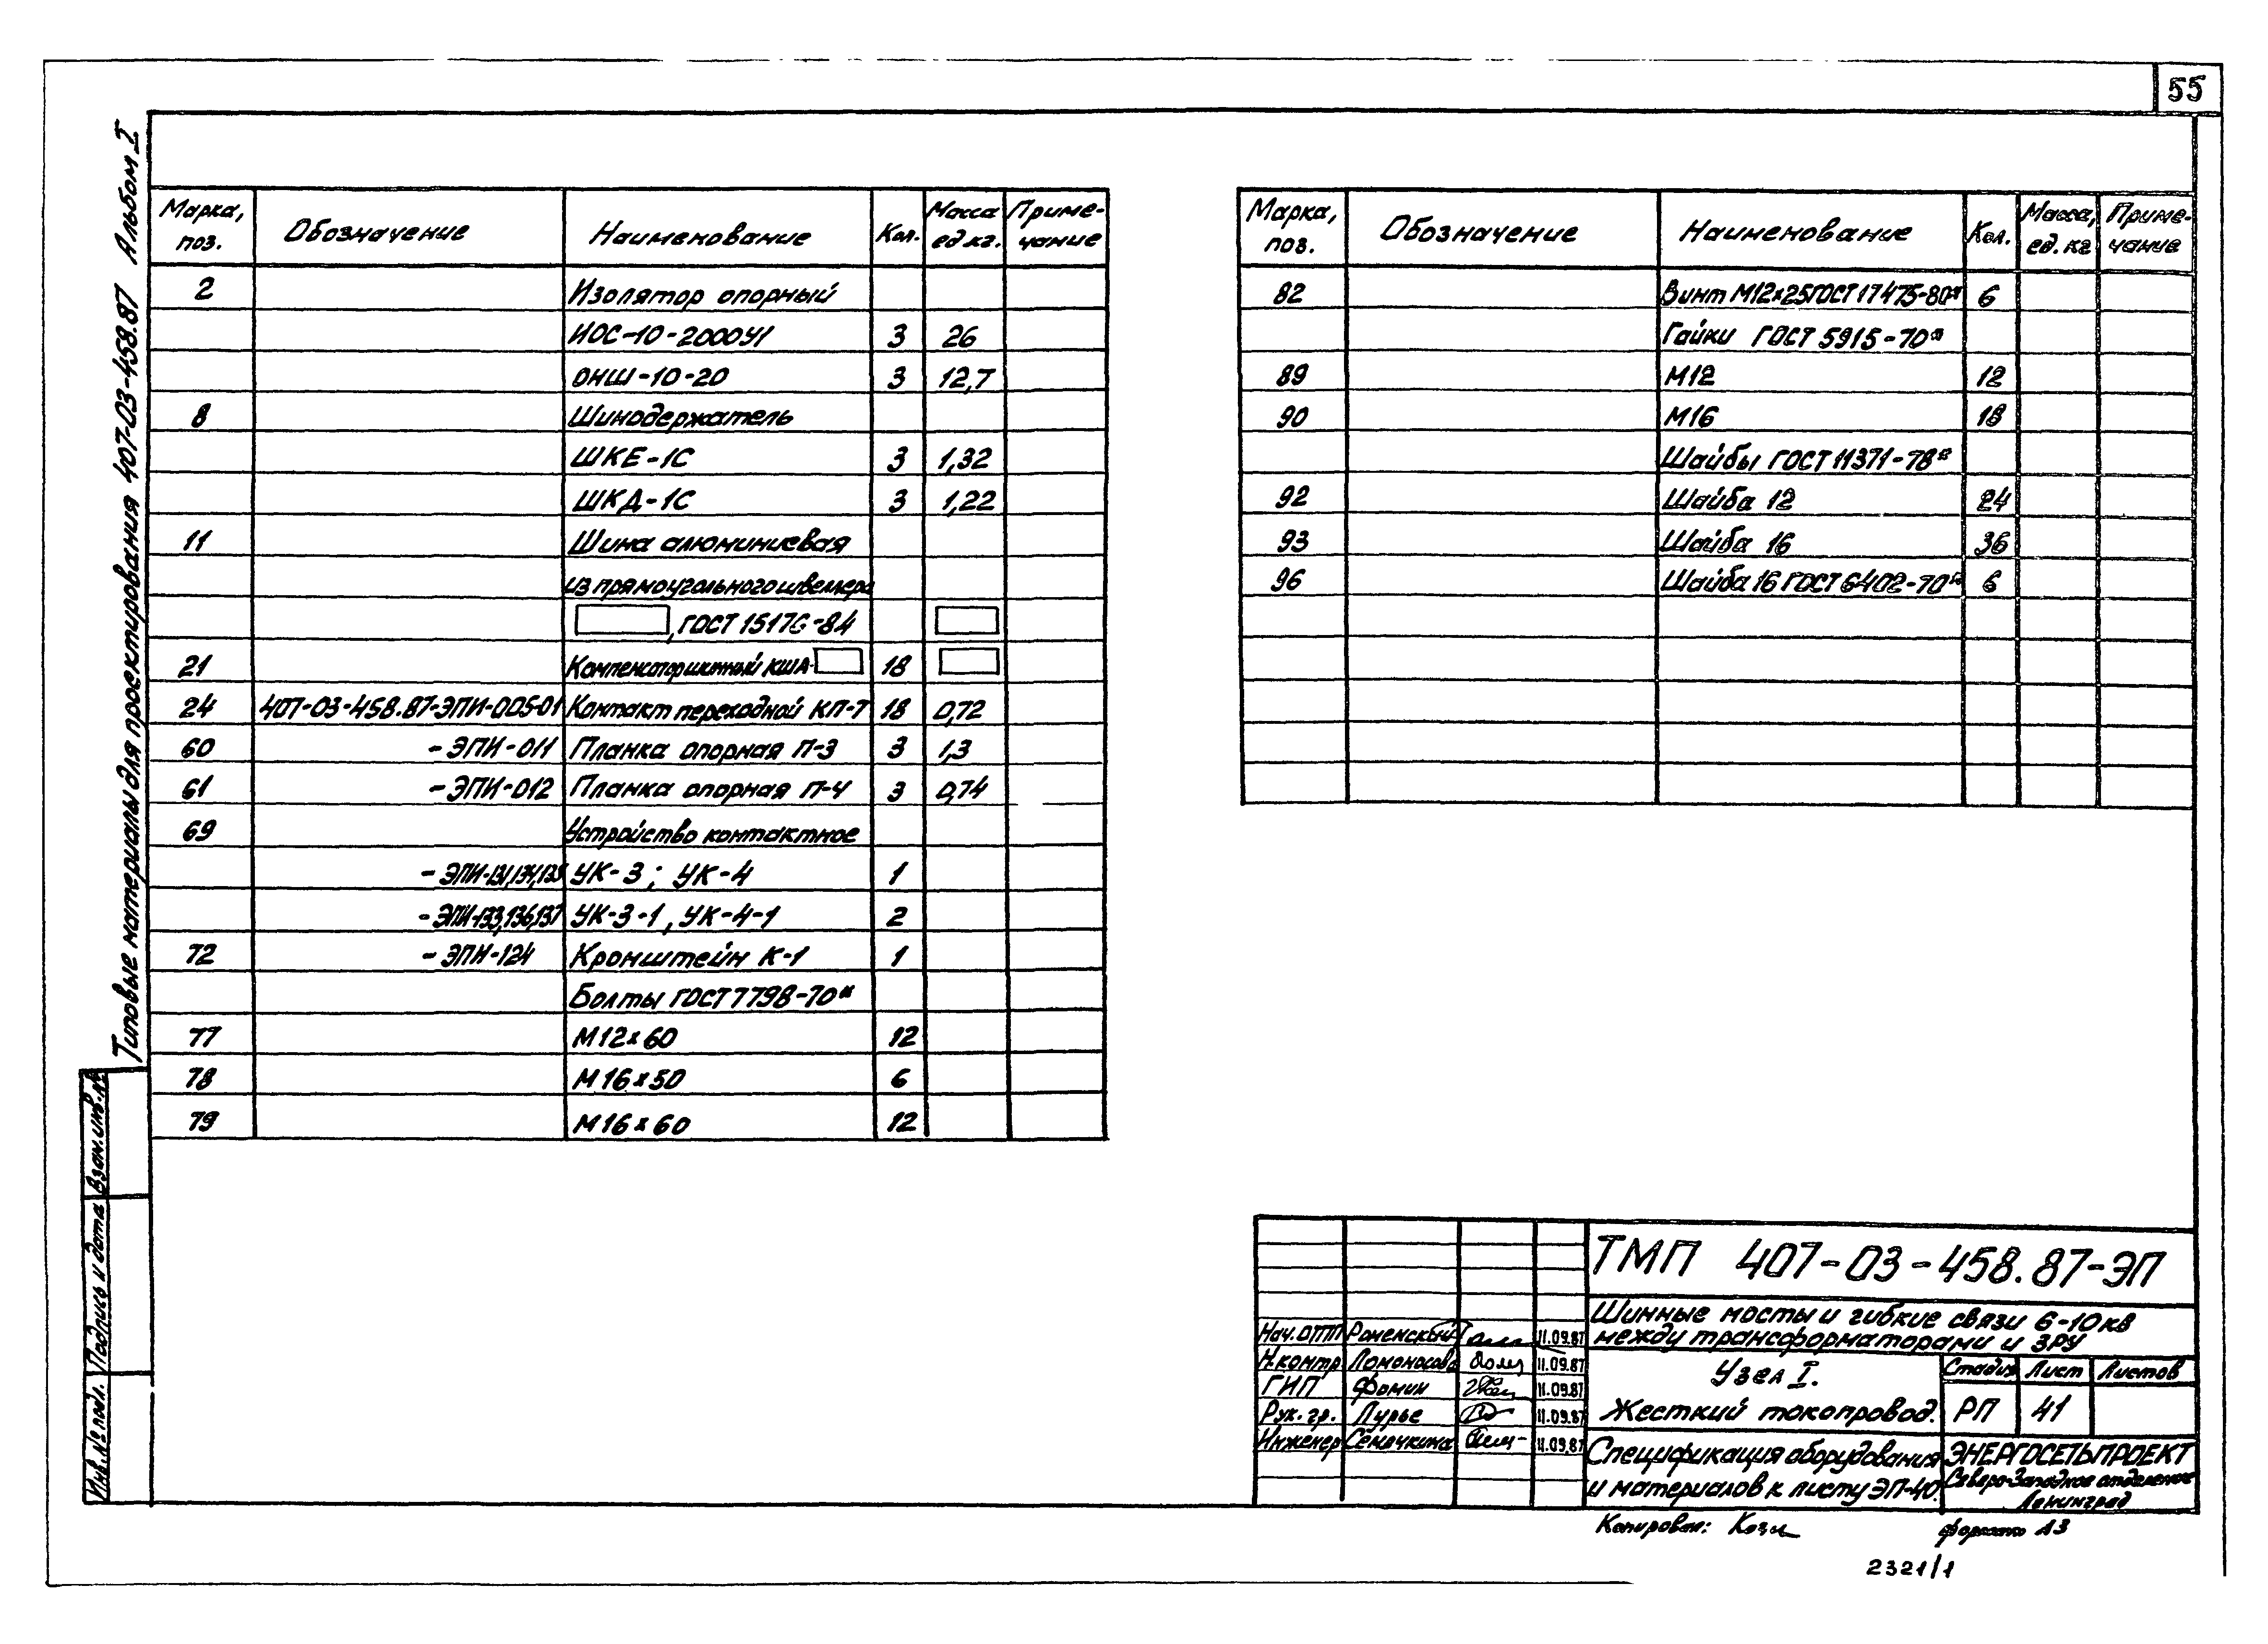 55
Типовые материалы для проектирования 407-03-458.87 Альбом I
Марка, поз. Обозначение Наименование Кол. Масса ед.кг. Примечание
2 Изолятор опорный
ИОС-10-2000У1 3 26
ОНШ-10-20 3 12,7
8 Шинодержатель
ШКЕ-1С 3 1,32
ШКД-1С 3 1,22
11 Шина алюминиевая
из прямоугольного швеллера
, ГОСТ 15176-84
21 Компенсатор шинный КША- 18
24 407-03-458.87-ЭПИ-005-01 Контакт переходной КП-7 18 0,72
60 -ЭПИ-011 Планка опорная П-3 3 1,3
61 -ЭПИ-012 Планка опорная П-4 3 0,74
69 Устройство контактное
-ЭПИ-131,134,135 УК-3; УК-4 1
-ЭПИ-133,136,137 УК-3-1, УК-4-1 2
72 -ЭПИ-124 Кронштейн К-1 1
Болты ГОСТ 7798-70*
77 М12х60 12
78 М16х50 6
79 М16х60 12
Марка, поз. Обозначение Наименование Кол. Масса, ед. кг Примечание
82 Винт М12х25 ГОСТ 17475-80* 6
Гайки ГОСТ 5915-70*
89 М12 12
90 М16 18
Шайбы ГОСТ 11371-78*
92 Шайба 12 24
93 Шайба 16 36
96 Шайба 16 ГОСТ 6402-70* 6
Взам.инв.№
Подпись и дата
Инв.№ подл.
ТМП 407-03-458.87-ЭП
Шинные мосты и гибкие связи 6-10кв
между трансформаторами и ЗРУ
Нач.ОТП Роменский 11.09.87
Н.контр Ломоносова 11.09.87
ГИП Фомин 11.09.87
Рук. гр. Лурье 11.09.87
Инженер Семочкина 11.09.87
Узел I.
Жесткий токопровод.
Стадия Лист Листов
РП 41
Спецификация оборудования
и материалов к листу ЭП-40.
ЭНЕРГОСЕТЬПРОЕКТ
Северо-Западное отделение
Ленинград
Копировал:
формат А3
2321/1